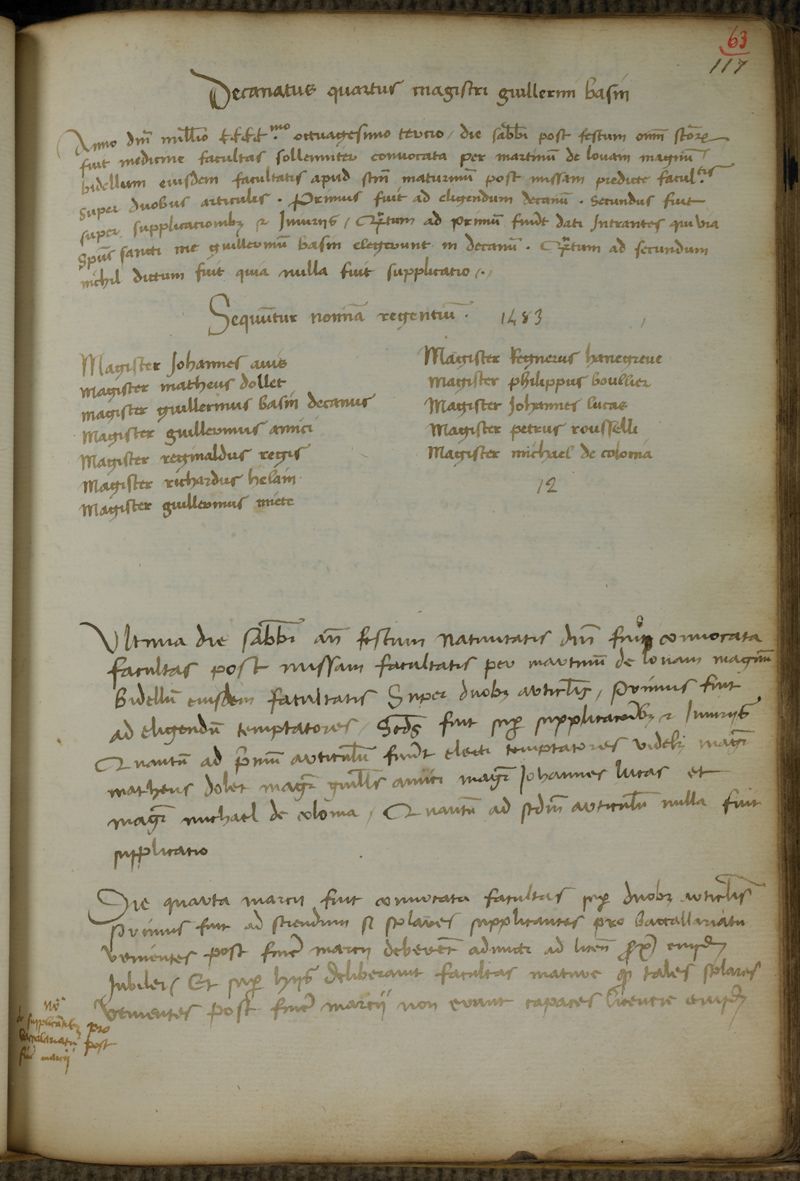 63
117
Decanatus quartus magistri guillermi basin
Anno dnī mill'io CCCC mo octuagesimo tercio / die sabbī post festum omī scto℞
fuit medicine facultas sollenniter convocata per martinū de lovain magnū /
bidellum eiusdem facultatis apud sctm maturinū post missam predicte facul.tis
super duobus articulis . Primus fuit ad eligendum decanū . Secundus fuit
super supplicationibꝫ et Iniuriis / Qātum ad primū fuer̄t dati Intrantes qui via
spūs sancti me guillermū basin elegerunt in decanū . Qātum ad secundum
nichil dictum fuit quia nulla fuit supplicatio /.
Sequūtur nomīa regentiū . 1483
Magister Johannes avis
Magister matheus dollet
magister guillermus basin decanus
Magister guillermus amici
Magister reginaldus regis
Magister richardus helain
Magister guillermus miete
Magister Regnerus hanegreve
Magister philippus boullier
Magister Johannes lucas
Magister petrus rousselli
Magister michael de colonia
12
Ultima die sabbī an̄ festum Nativitatis dnī fuit convocata
facultas post missam facultatis per martinū de lovain magnū
bidellū eiusdem facultatis Super duobꝫ articl'is / Primus fuit
ad eligendū temptatores / Scds fuit sup supplicatōibꝫ et Iniuriis
Quantū ad pmū articulū fuer̄t electi temptatores videlꝫ magr
matheus dolet magr guill's amici magr Johannes lucas et
magr michael de colonia / Quantū ad scdm articulū nulla fuit
supplicatio
Die quarta marcii fuit convocata facultas sup duobꝫ articl'is
Primus fuit ad sciendum si scolares supplicantes pro baccallariatu
venientes post finē marcii deberēt admitti ad licen
Iubilei / Et sup hiis deliberavit facultas mature tales scolares
venientes post finē marcii non erant capaces licencie
No
de supplicātibꝫ pro
bacalariatu post
finē marcii